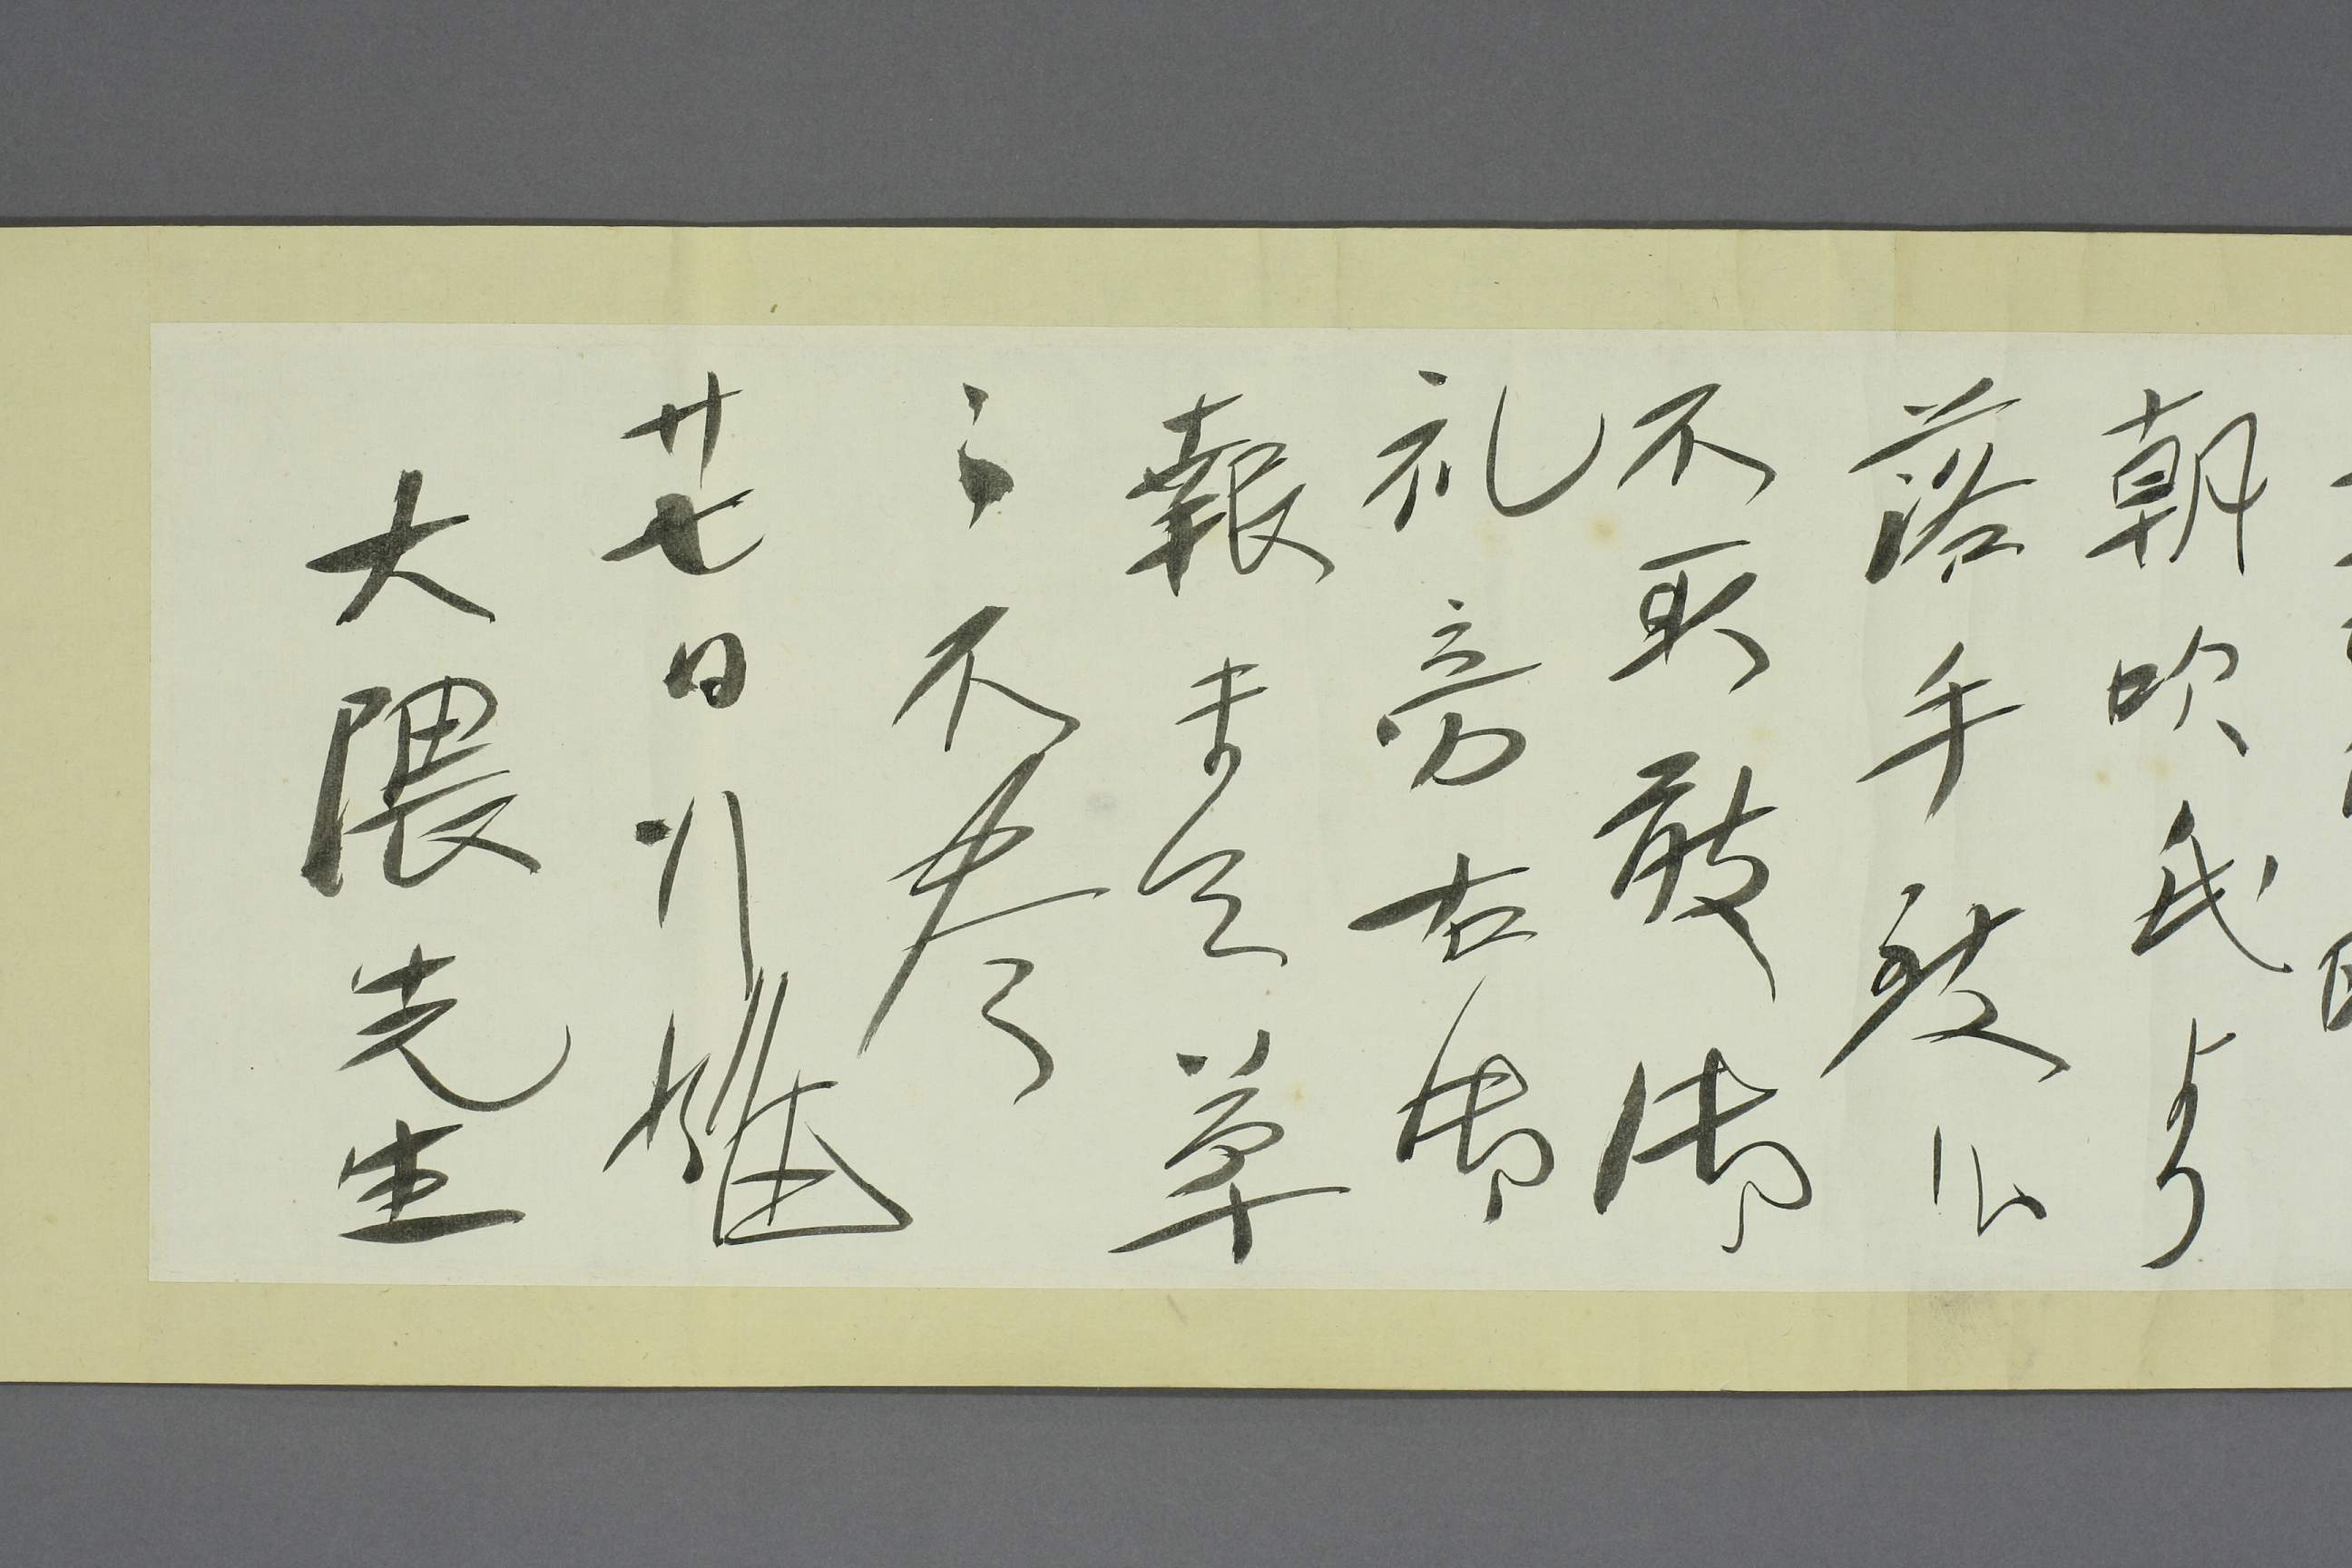 朝吹氏より
落手致候
不取敢御
礼旁右御
報まで草
々不尽
廿七日
大隈先生